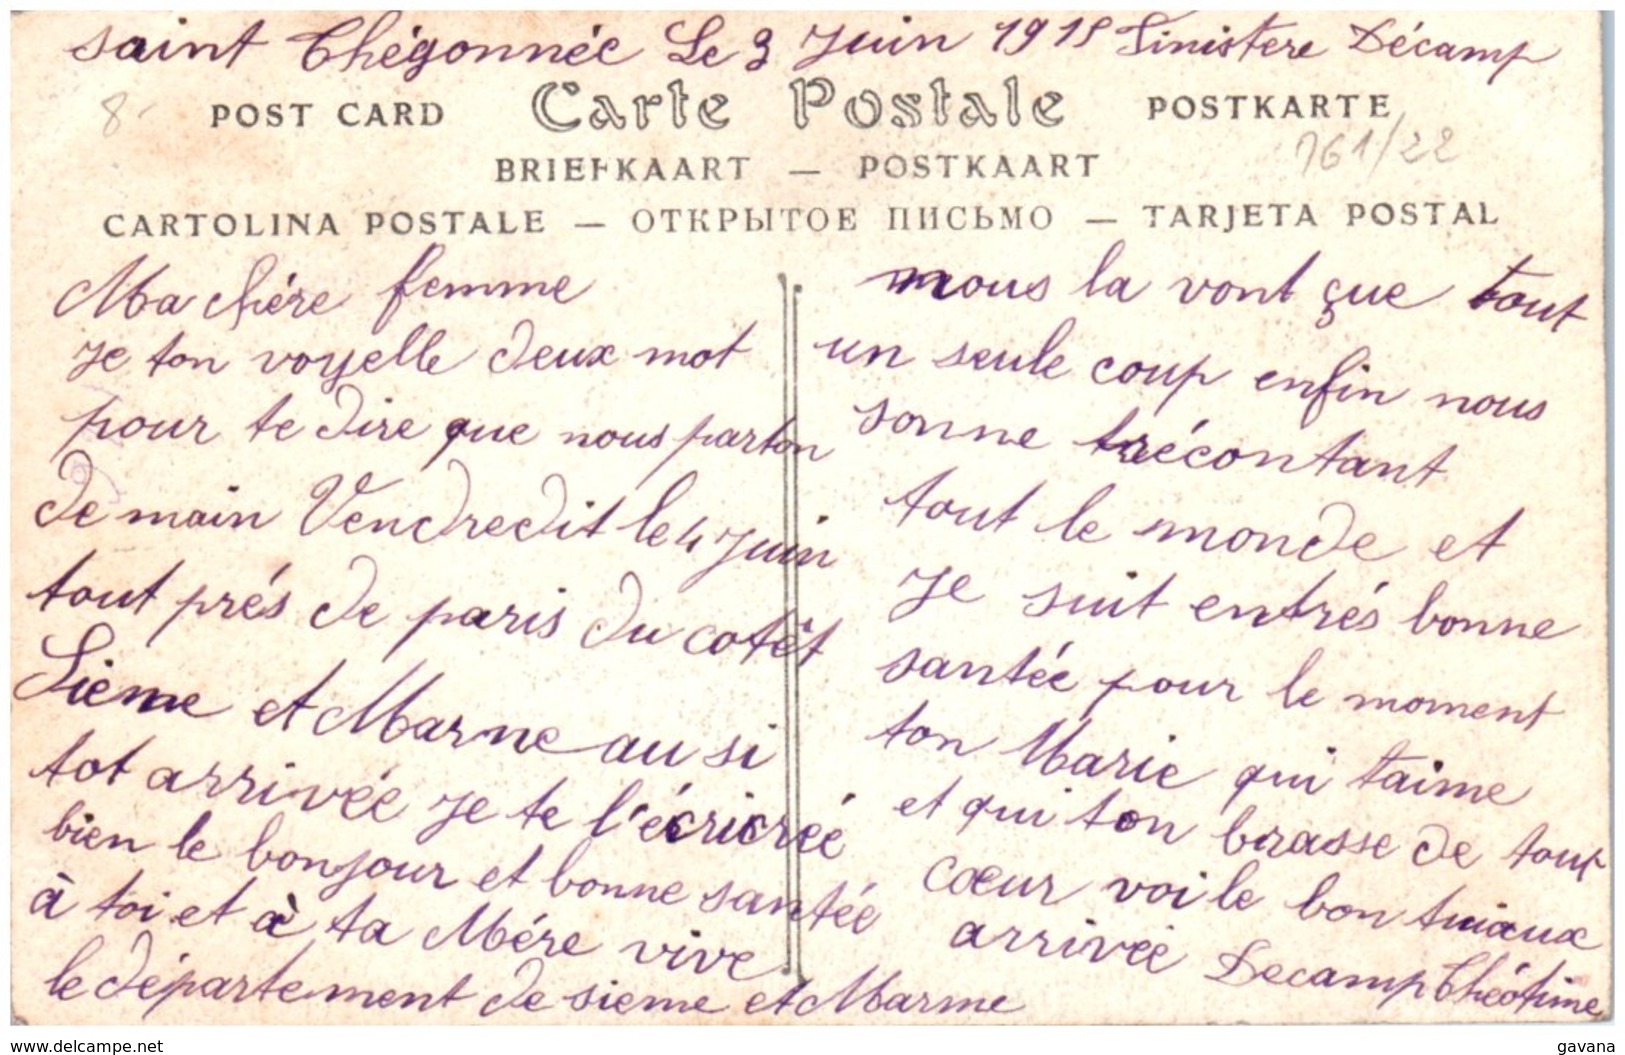 saint Thégonnée Le 3 Juin 1915 Finistere Décamp
8-
POST CARD Carte Postale POSTKARTE
761/22
BRIEFKAART — POSTKAART
CARTOLINA POSTALE — ОТКРЫТОЕ ПИСЬМО — TARJETA POSTAL
Ma chére femme
Je ton voyelle deux mot
pour te dire que nous parton
de main Vendredit le 4 Juin
tout prés de paris du cotêt
Sieme et Marne au si
tot arrivée Je te l'écricrée
bien le bonjour et bonne santée
à toi et à ta Mére vive
le département de sieme et Marme
nous la vont que tout
un seule coup enfin nous
sonne trécontant
tout le monde et
Je suit entrés bonne
santée pour le moment
ton Marie qui t'aime
et qui ton brasse de tout
cœur voi le bon tuiaux
arrivée Decamp Théotime
www.delcampe.net
gavana